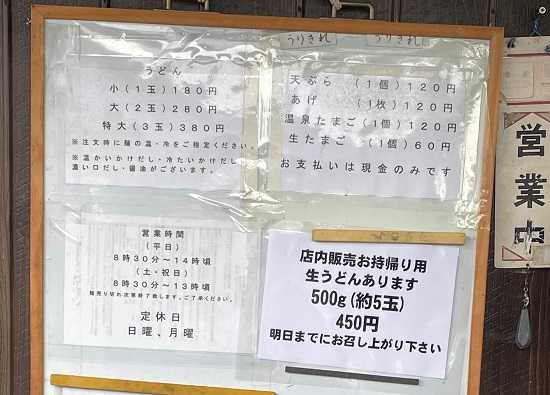 うりきれ
うりきれ
うどん
小(1玉)180円
大(2玉)280円
特大(3玉)380円
※注文時に麺の温・冷をご指定ください。
※温かいかけだし・冷たいかけだし
濃い口だし・醤油がございます。
天ぷら (1個)120円
あげ (1枚)120円
温泉たまご(1個)120円
生たまご(1個)60円
お支払いは現金のみです
営業時間
(平日)
8時30分〜14時頃
(土・祝日)
8時30分〜13時頃
麺売り切れ次第終了致します。ご了承ください。
定休日
日曜、月曜
店内販売お持帰り用
生うどんあります
500g(約5玉)
450円
明日までにお召し上がり下さい
営業中